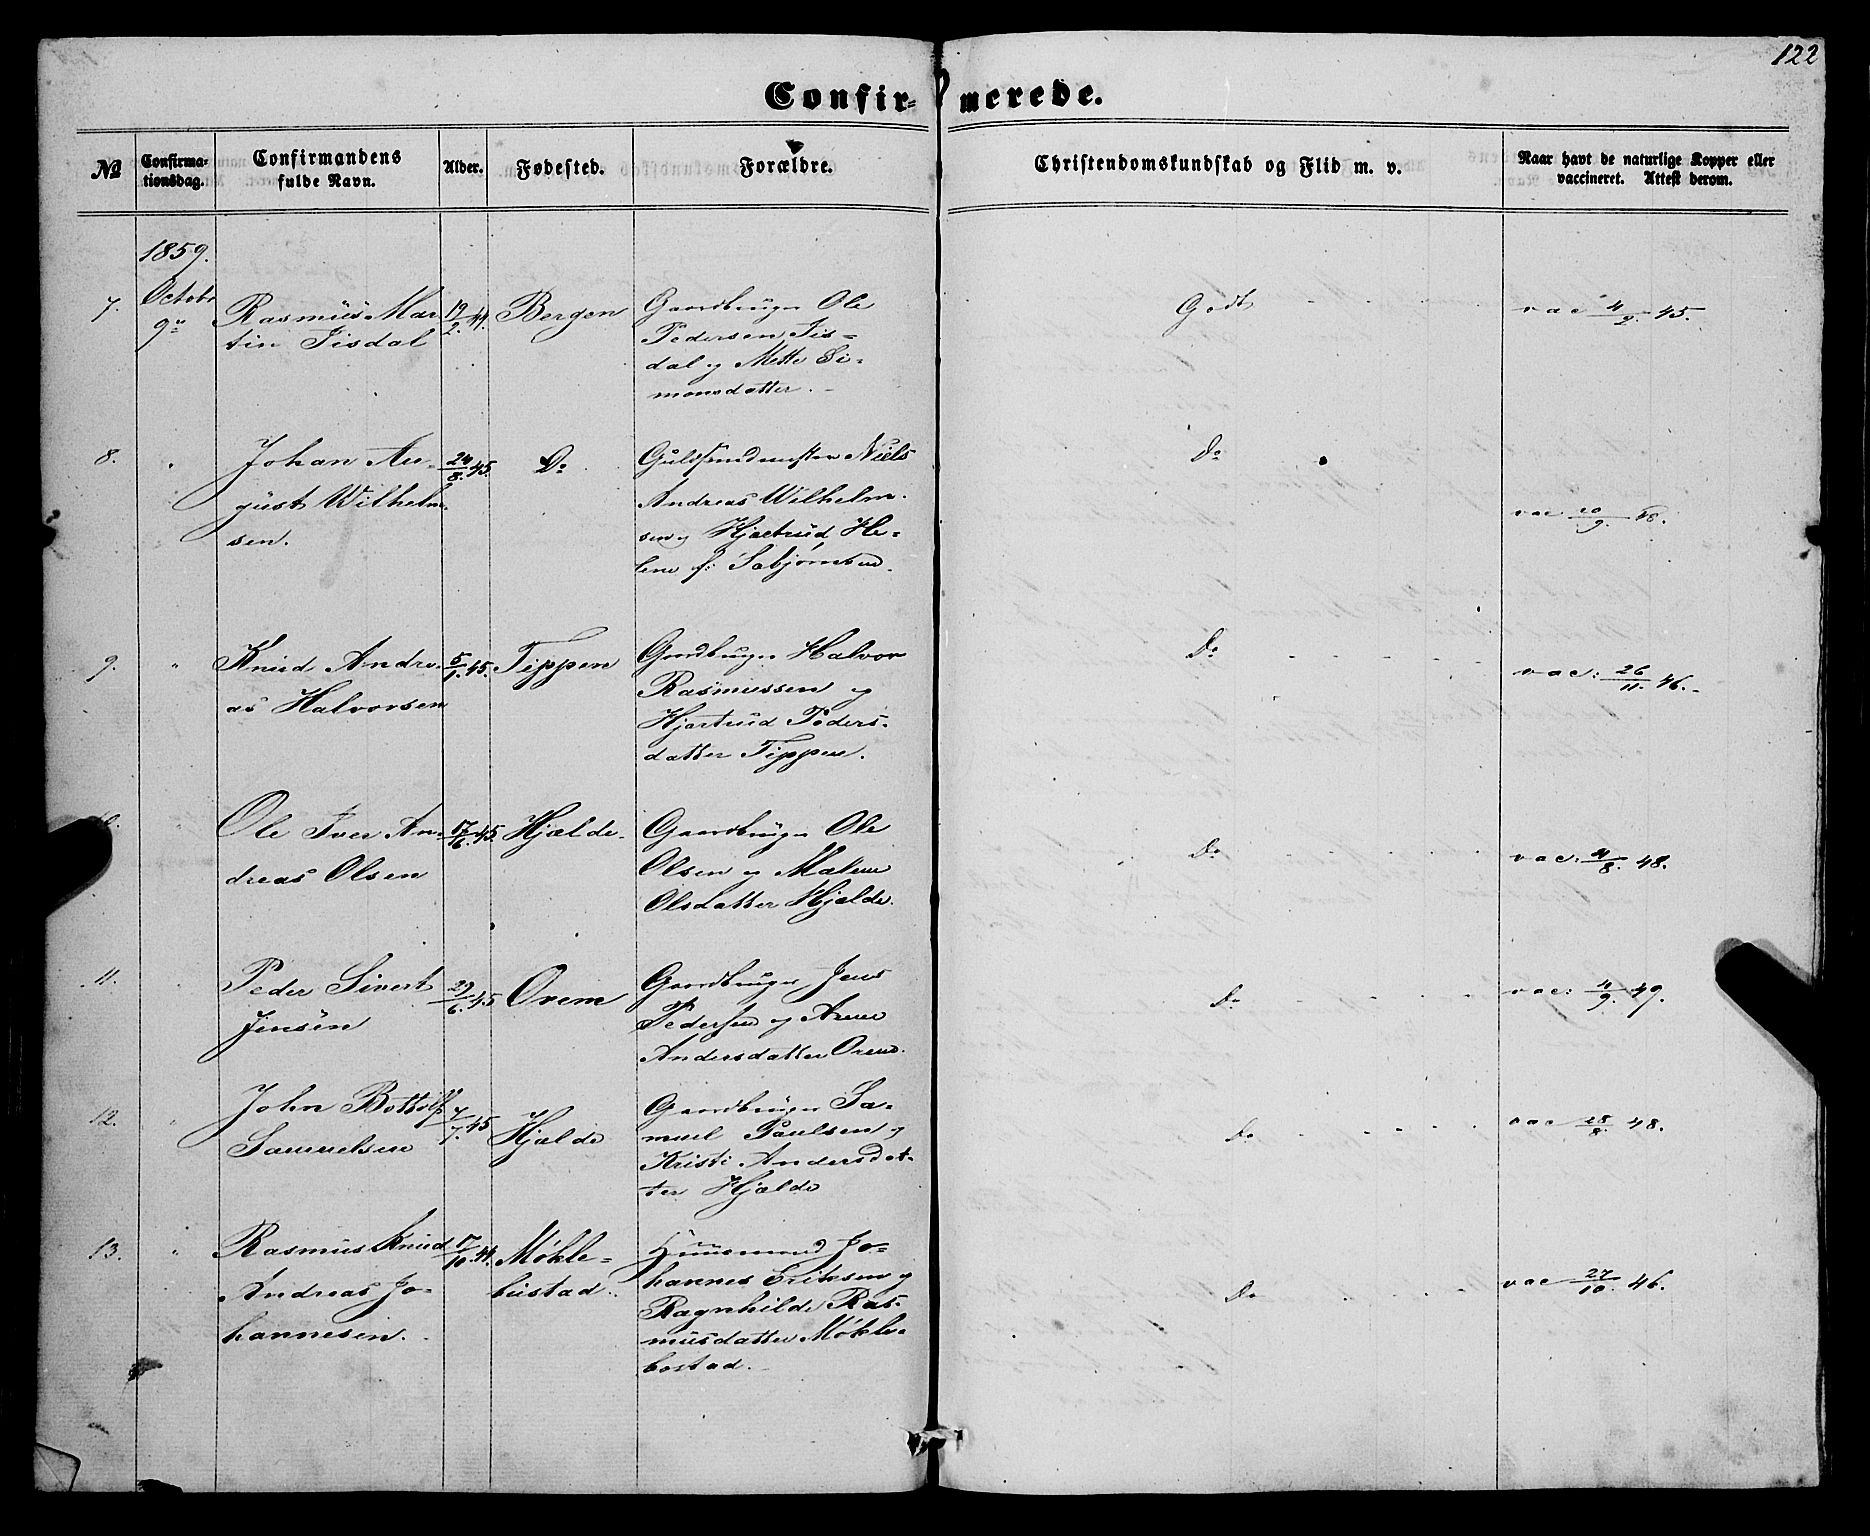 122
Confirmerede.
No
Confirmationsdag.
Confirmandens fulde Navn.
Alder.
Fødested.
Forældre.
Christendomskundskab og Flid m. v.
Naar havt de naturlige Kopper eller vaccineret. Attest derom.
1859.
7.
Octobr
9de
Rasmüs Mar
tin Jisdal
19/2. 44.
Bergen
Gaardbruger Ole
Pedersen Jis=
dal og Mette Si=
monsdatter.
Godt
vac 4/2. 45.
8.
"
Johan Au-
güst Wilhelm
sen.
24/8. 45.
Do
Guldsmedmester Niels
Andreas Wilhelm-
sen og Hjertrud He=
lene f:
Do
vac 20/9. 48.
9.
"
Knud Andre-
as Halvorsen
5/1. 45.
Tippen
Gaardbruger Halvor
Rasmussen og
Hjertrud Peders-
datter Tippen.
Do
vac: 26/11. 46.
"
Ole Iver An-
dreas Olsen
17/6. 45.
Hjelde
Gaardbrüger Ole
Olsen og Malene
Olsdatter Hjelde.
Do
vac: 4/8. 48.
11.
"
Peder Sivert
Jensen
29/6. 45
Orem
Gaardbruger Jens
Pedersen og Anne
Andersdatter Orem.
Do
vac: 4/9. 49.
12.
"
John Bottolf
Samuelsen
7/7. 45
Hjelde
Gaardbrüger Sa-
muel Paulsen og
Kristi Andersdat-
ter Hjelde
Do
vac 28/8. 48.
13.
"
Rasmus Knud
Andreas Jo-
hannesen.
17/10. 44.
Møkle-
bustad.
Huusmand Jo-
hannes Eriksen og
Ragnhilde Ras-
müsdatter Møkle-
bostad.
Do
vac 27/10. 46.